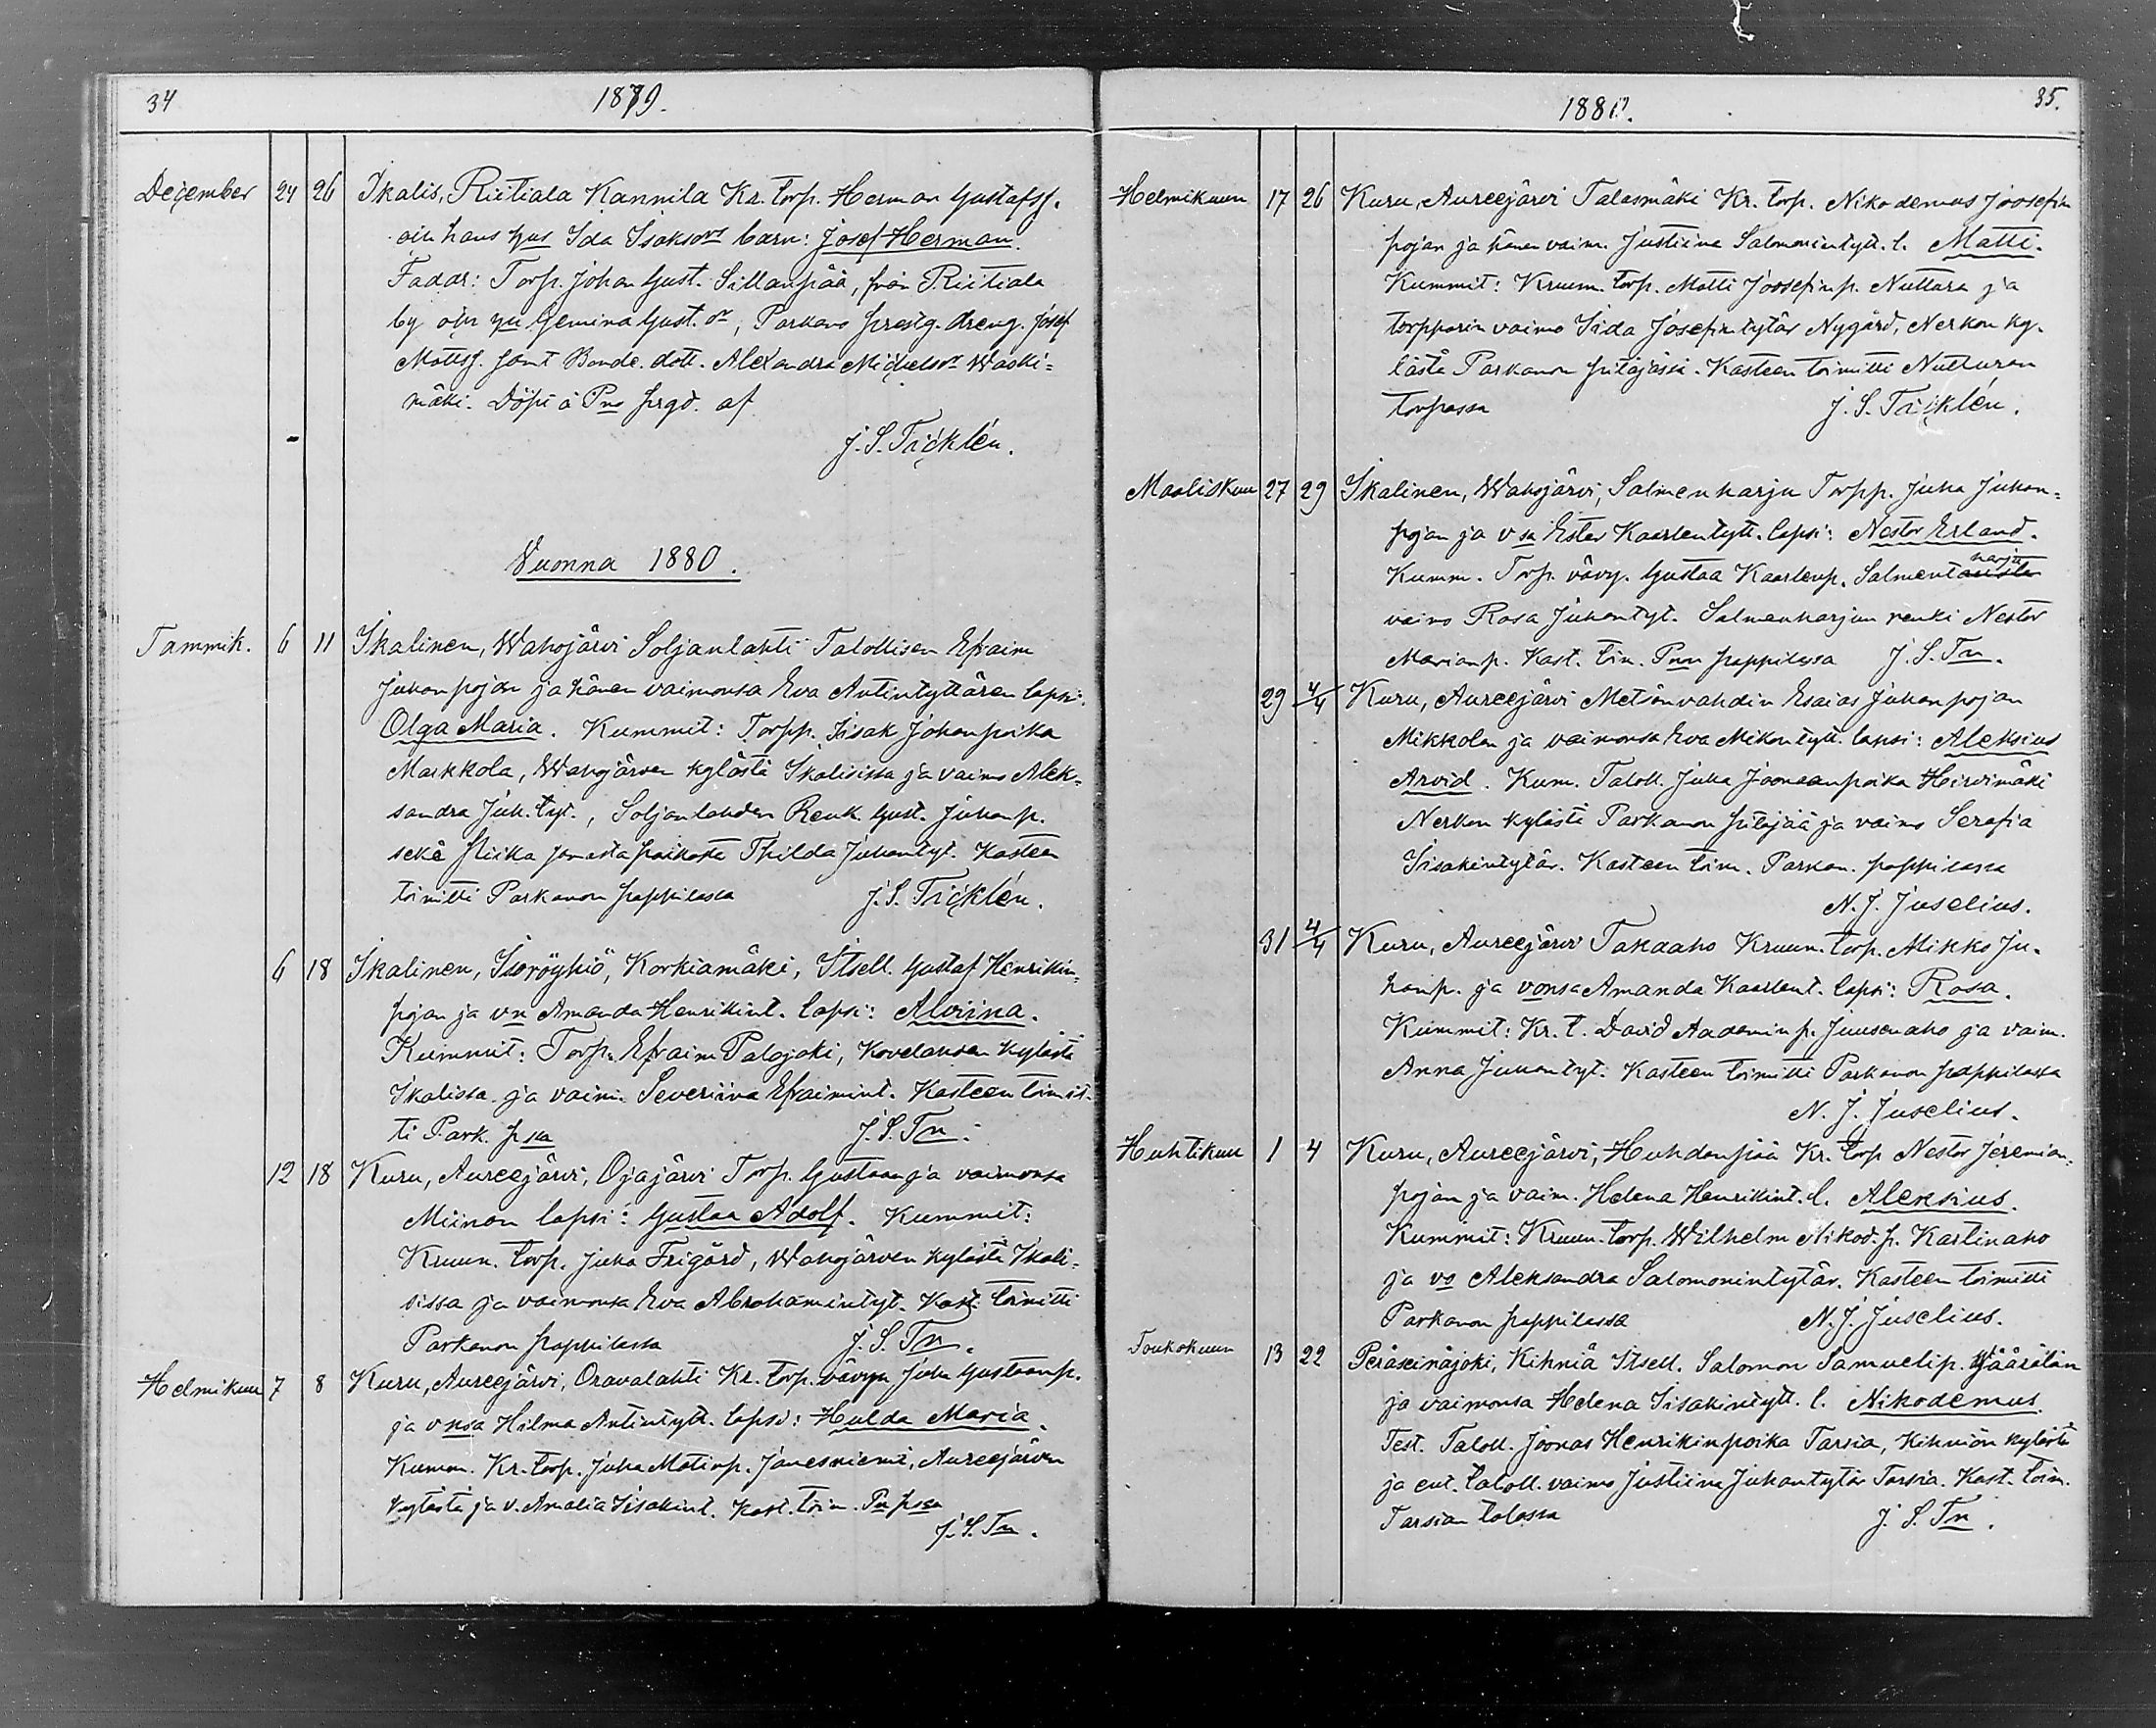 34
1879.
December 24 26 Ikalis, Riitiala Kannila Kr. torp. Herman Gustafss.
och hans hus Ida Isaksdr barn: Josef Herman.
Faddr: Torp. Johan Gust. Sillanpää, från Riitiala
by och Gemina Gust. dr, Parkano prestg. dreng. Josef
Mattss. samt Bonde. dott. Alexandra Michelsdr Waski=
mäki. Döpt å Pno prgd. af
J. S. Tricklén.
Vuonna 1880.
Tammik. 6 11 Ikalinen, Wahojärvi Soljanlahti Talollisen Efraim
Juhanpojan ja hänen vaimonsa Eva Antintyttären lapsi:
Olga Maria. Kummit: Torpp. Iisak Johanpoika
Markkola, Wahojärven kylästä Ikalisissa ja vaimo Alek=
sandra Juh. tyt., Soljanlahden Renk. Gust. Juhanp.
sekä piika samasta paikasta Thilda Juhantyt. Kasteen
toimitti Parkanon pappilassa J. S. Tricklén.
6 18 Ikalinen, Isoröyhiö, Korkiamäki, Itsell. Gustaf Henrikin=
pojan ja vn Amanda Henrikint. lapsi: Alviina.
Kummit: Torp. Efraim Palojoki, Kovelahden kylästä
Ikalissa ja vaim. Severiina Efraimint. Kasteen toimit-
ti Park. pssa J. S. Tn.
12 18 Kuru, Aureejärvi, Ojajärvi Torp. Gustaan ja vaimonsa
Miinan lapsi: Gustaa Adolf. Kummit:
Kruun. torp. Juha Frigård, Wahojärven kylästä Ikali-
sissa ja vaimonsa Eva Abrahamintyt. Kast. toimitti
Parkanon pappilassa J. S. Tn.
Helmikuu 7 8 Kuru, Aureejärvi, Oravalahti Kr. torp. vävyn Juha Gustaanp.
ja vnsa Hilma Antintytt. lapsi: Hulda Maria.
Kumm. Kr. torp. Juha Matinp. Jänesniemi, Aureejärven
kylästä ja v. Amalia Iisakint. Kast. toim. Pn pssa
J. S. Tn.
1880.
35.
Helmikuun 17 26 Kuru, Aureejärvi Talasmäki Kr. torp. Nikodemus Joosefin
pojan ja hänen vaim. Justiina Salomonintytt. l. Matti.
Kummit: Kruun. torp. Matti Joosefinp. Nuttura ja
torpparin vaimo Iida Josefintytär Nygård, Nerkon ky-
lästä Parkanon pitäjässä. Kasteen toimitti Nutturan
torpassa J. S. Tricklén.
Maaliskuu 27 29 Ikalinen, Wahojärvi, Salmenharju Torpp. Juha Juhan=
pojan ja vsa Ester Kaarlentytt. lapsi: Nestor Erland.
Kumm. Torp. vävy. Gustaa Kaarlenp. Salmen harju
vaimo Rosa Juhantyt. Salmenharjun renki Nestor
Marianp. Kast. tim. Pnn pappilassa J. S. Tn.
29 4/4 Kuru, Aureejärvi Metsänvahdin Esaias Juhanpojan
Mikkolan ja vaimonsa Eva Mikontytt. lapsi: Aleksius
Arvid. Kum. Taloll. Juha Joonaanpoika Hirvimäki
Nerkon kylästä Parkanon pitäjää ja vaimo Serafia
Iisakintytär. Kasteen toim. Parkan. pappilassa
N. J. Juselius.
31 4/4 Kuru, Aureejärvi Takaaho Kruun. torp. Mikko Ju-
hanp. ja vonsa Amanda Kaarlent. lapsi: Rosa.
Kummit: Kr. t. David Aadamin p. Juusenaho ja vaim.
Anna Juhantyt. Kasteen toimitti Parkanon pappilassa
N. J. Juselius.
Huhtikuu 1 4 Kuru, Aureejärvi, Huhdanpää Kr. torp Nestor Jeremian=
pojan ja vaim. Helena Henrikint. l. Aleksius.
Kummit: Kruun. torp. Wilhelm Nikod. p. Kastinaho
ja vo Aleksandra Salomonintytär. Kasteen toimitti
Parkanon pappilassa N. J. Juselius.
Toukokuun 13 22 Peräseinäjoki, Kihniä Itsell. Salomon Samuelip. Määrälän
ja vaimonsa Helena Iisakintytt. l. Nikodemus.
Test. Taloll. Joonas Henrikinpoika Tarsia, Kihniön kylästä
ja ent. taloll. vaimo Justiina Juhantytär Tarsia. Kast. toim.
Tarsian talossa J. S. Tn.